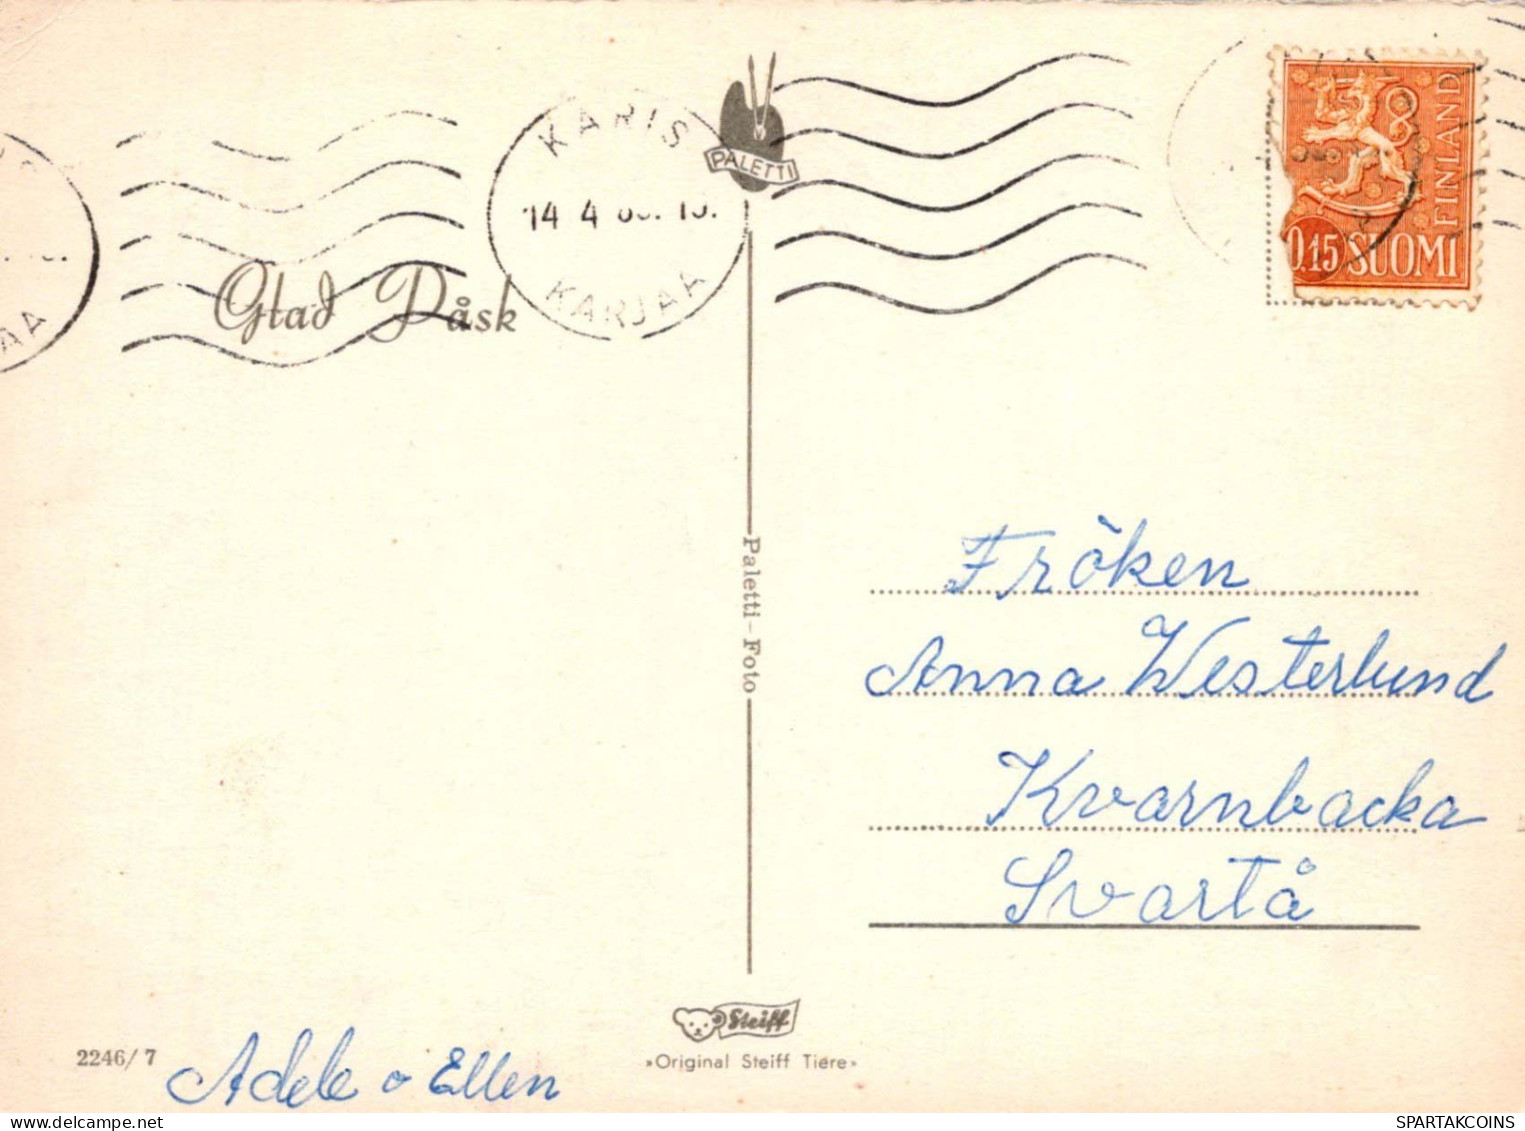 KARIS
14 4
KARJAA
PALETTI
FINLAND
0.15 SUOMI
AA
Glad Påsk
Paletti-Foto
Fröken
Anna Westerlund
Kvarnbacka
Svartå
Steiff
»Original Steiff Tiere»
2246/7
Adele o Ellen
SPARTAKCOINS